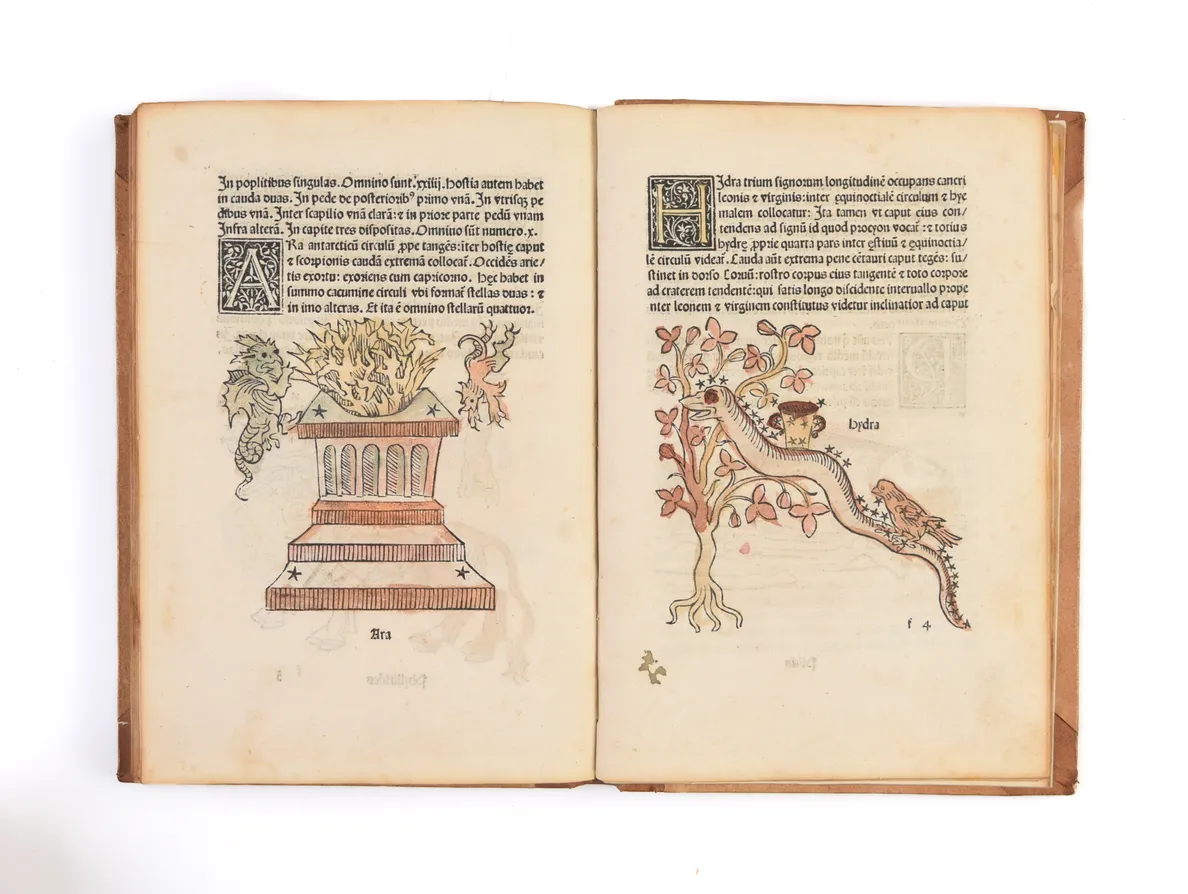 In poplitibus singulas. Omnino sunt .xxiiij. hostia autem habet
in cauda duas. In pede de posteriorib⁹ primo vnã. In vtrisq; pe
dibus vnã. Inter scapilio vnã clarã: ⁊ in priore parte pedũ vnam
Infra alterã. In capite tres dispositas. Omnino sũt numero .x.
ARa antarcticũ circulũ ꝓpe tangẽs: ĩter hostię caput
⁊ scorpionis caudã extremã collocat̃. Occidẽs arie/
tis exortu: exoriens cum capricorno. Hęc habet in
summo cacumine circuli vbi format̃ stellas duas: ⁊
in imo alteras. Et ita ẽ omnino stellarũ quattuor.
Ara
HIdra trium signorum longitudinẽ occupans cancri
leonis ⁊ virginis: inter ęquinoctialẽ circulum ⁊ hye
malem collocatur: Ita tamen vt caput eius con/
tendens ad signũ id quod procyon vocat̃: ⁊ totius
hydrę ꝓprie quarta pars inter ęstiuũ ⁊ ęquinoctia/
lẽ circulũ videat̃. Cauda aũt extrema pene cẽtauri caput tegẽs: su/
stinet in dorso Coruũ: rostro corpus eius tangentẽ ⁊ toto corpore
ad craterem tendentẽ: qui satis longo discidente interuallo prope
inter leonem ⁊ virginem constitutus videtur inclinatior ad caput
hydra
f 4